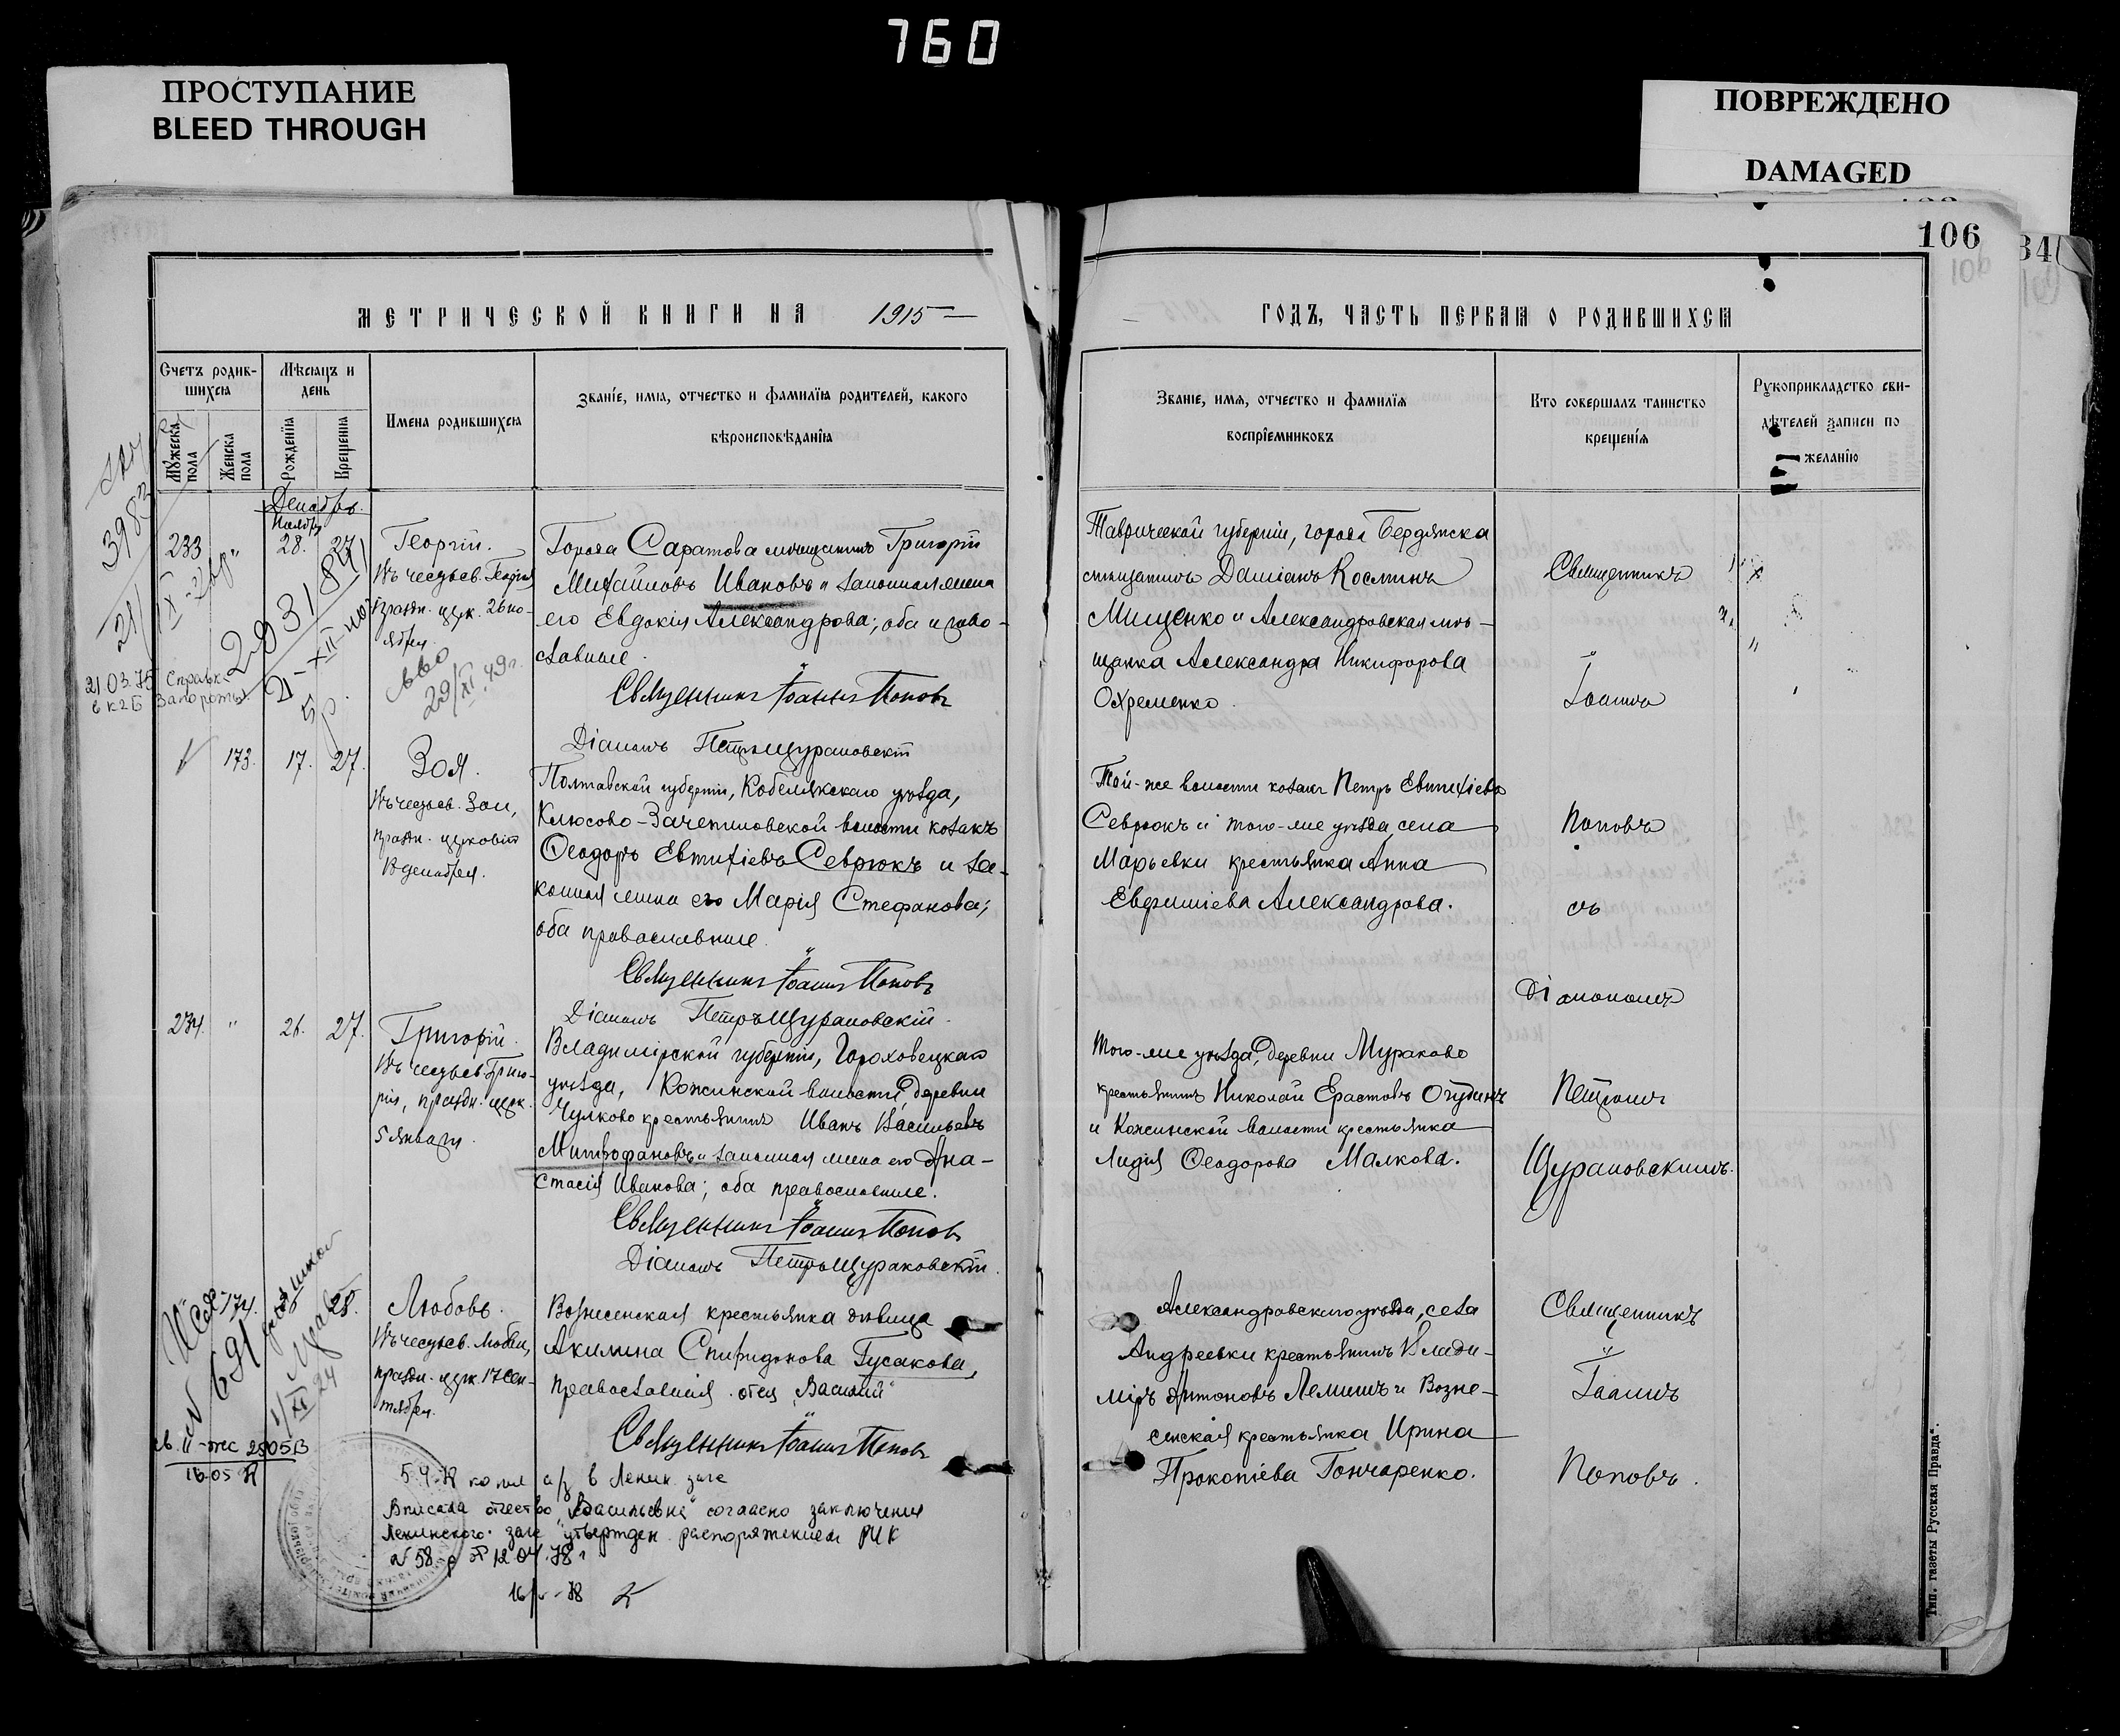 760
ПРОСТУПАНИЕ
BLEED THROUGH
ПОВРЕЖДЕНО
DAMAGED
106
МЕТРИЧЕСКОЙ КНИГИ НА 1915
ГОДЪ, ЧАСТЬ ПЕРВАЯ О РОДИВШИХСЯ
Счетъ родив-
шихся
Мужеска пола
Женска пола
Мѣсяцъ и
день
Рожденія
Крещенія
Имена родившихся
Званіе, имя, отчество и фамилія родителей, какого
вѣроисповѣданія
Званіе, имя, отчество и фамилія
воспріемниковъ
Кто совершалъ таинство
крещенія
Рукоприкладство сви-
дѣтелей записи по
желанію
Декабрь.
Ноября
233 " 28. 27.
Георгій.
Въ честь св. Георгія
праздн. церк. 26 но-
ября
Города Саратова мѣщанинъ Григорій
Михайловъ Ивановъ и законная жена
его Евдокія Александрова; оба право-
славные.
Священникъ Іоаннъ Поповъ
Діаконъ Петръ Щураковскій
Таврической губерніи, города Бердянска
мѣщанинъ Даміанъ Косминъ
Мищенко и Александровская мѣ-
щанка Александра Никифорова
Охременко.
Священникъ
Іоаннъ
173. 17. 27.
Зоя.
Въ честь св. Зои,
праздн. церковію
18 декабря.
Полтавской губерніи, Кобелякскаго уѣзда,
Клюсово-Зачепиловской волости козакъ
Ѳеодоръ Евтихіевъ Севрюкъ и за-
конная жена его Марія Стефанова;
оба православные.
Священникъ Іоаннъ Поповъ
Діаконъ Петръ Щураковскій.
Той-же волости козакъ Петръ Евтихіевъ
Севрюкъ и того-же уѣзда, села
Марьевки крестьянка Анна
Евфиміева Александрова.
Поповъ
съ
Діакономъ
234. " 26. 27.
Григорій.
Въ честь св. Григо-
рія, праздн. церк.
5 января.
Владимірской губерніи, Гороховецкаго
уѣзда, Кожинской волости, деревни
Чулково крестьянинъ Иванъ Васильевъ
Митрофановъ и законная жена его Ана-
стасія Иванова; оба православные.
Священникъ Іоаннъ Поповъ
Діаконъ Петръ Щураковскій.
Того-же уѣзда, деревни Мураково
крестьянинъ Николай Ерастовъ Огудинъ
и Кожинской волости крестьянка
Лидія Ѳеодорова Малкова.
Петромъ
Щураковскимъ.
174. 28.
Любовь.
Въ честь св. Любви,
праздн. церк. 17 сен-
тября.
Вознесенская крестьянка дѣвица
Акилина Спиридонова Гусакова,
православная. отец "Василий"
Священникъ Іоаннъ Поповъ
Александровскаго уѣзда, села
Андреевки крестьянинъ Влади-
міръ Антоновъ Лемишъ и Возне-
сенская крестьянка Ирина
Прокопіева Гончаренко.
Священникъ
Іоаннъ
Поповъ.
3982
293187
29/XI 49г.
21.03.75
Запорожье
№ 691
Вписала отчество "Васильевна" согласно заключения
Ленинского загс утвержден. распоряжением РИК
N 58 р от 12.04.78 г
Тип. газеты „Русская Правда“.